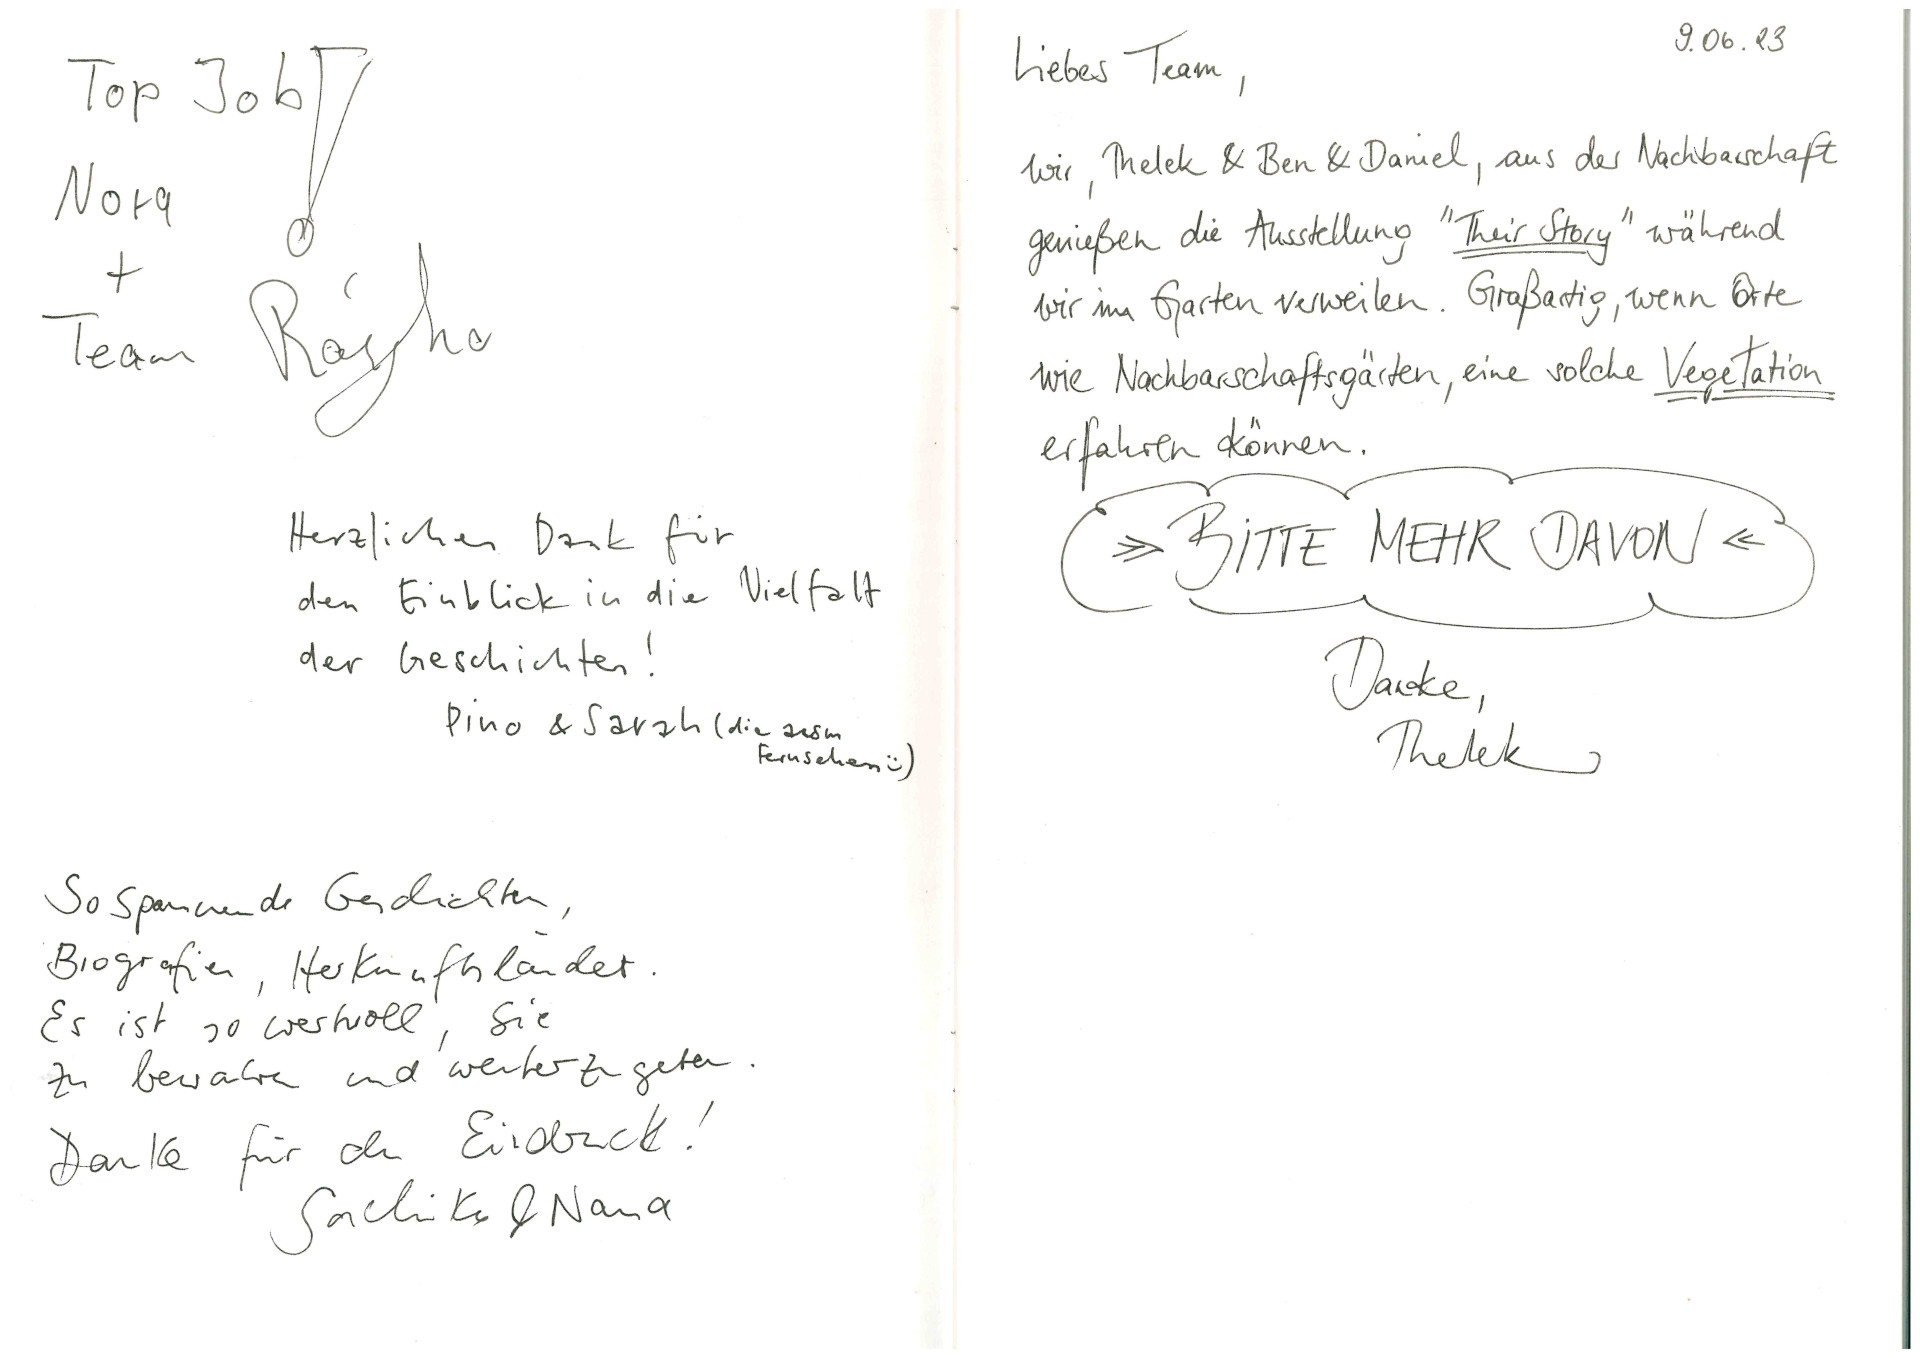 Top Job!
Nora
+
Team
Herzlichen Dank für
den Einblick in die Vielfalt
der Geschichten!
Pino & Sarah (die ausm
Fernsehen ü)
So spannende Geschichten,
Biografien, Herkunftsländer.
Es ist so wertvoll, sie
zu bewahren und weiterzugeben.
Danke für den Eindruck!
Sachiko & Nana
9.06.23
Liebes Team,
wir, Thelek & Ben & Daniel, aus der Nachbarschaft
genießen die Ausstellung "Their Story" während
wir im Garten verweilen. Großartig, wenn Orte
wie Nachbarschaftsgärten, eine solche Vegetation
erfahren können.
>> BITTE MEHR DAVON <<
Danke,
Thelek